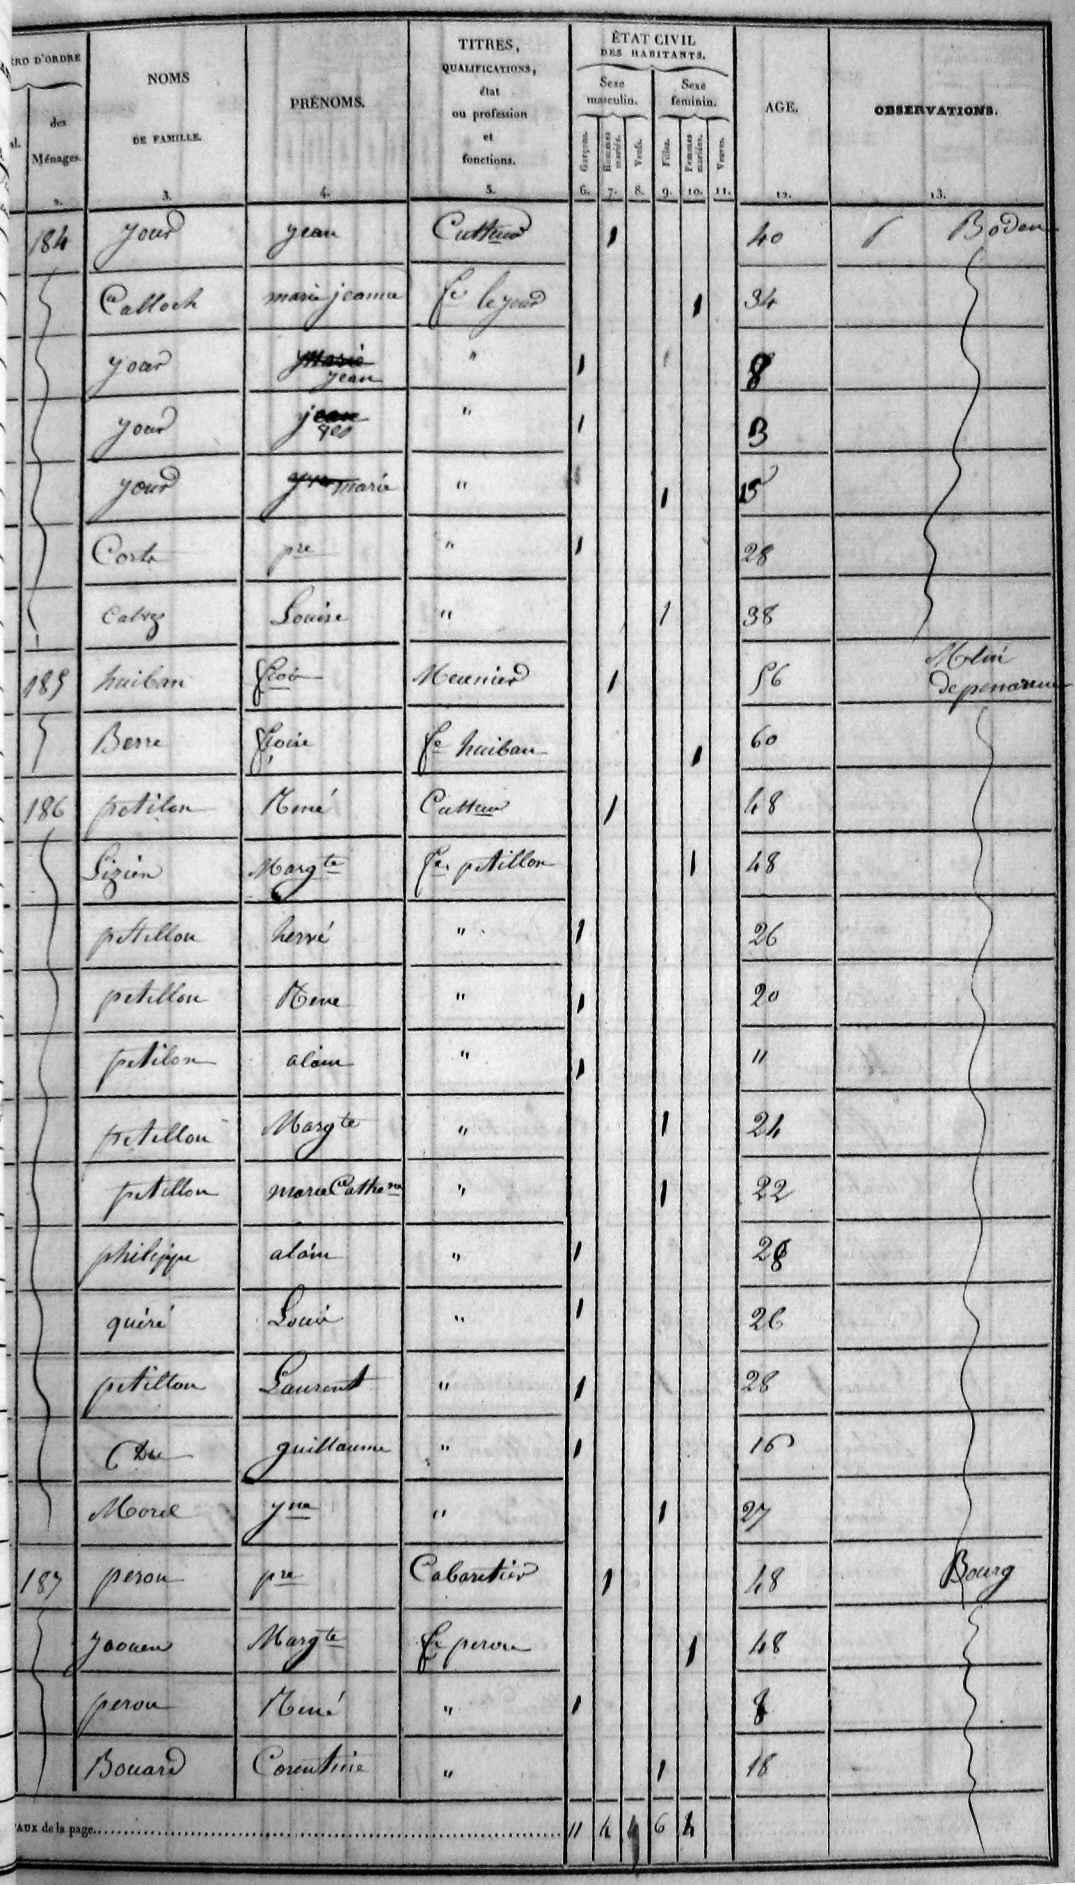 RO D'ORDRE
des
Ménages.
2.
NOMS
DE FAMILLE.
3.
PRÉNOMS.
4.
TITRES,
QUALIFICATIONS,
état
ou profession
et
fonctions.
5.
ÉTAT CIVIL
DES HABITANTS.
Sexe
masculin.
Sexe
feminin.
Garçons.
Hommes mariés.
Veufs.
Filles.
Femmes mariées.
Veuves.
6. 7. 8. 9. 10. 11.
AGE.
12.
OBSERVATIONS.
13.
184 Jour jean Cultteur 1 40 Boden
Calloch marie jeanne fe le jour 1 34
jour marie jean " 1 8
jour jean " 1 3
jour yves marie " 1 15
Corte pre " 1 28
Louise " 1 38
185 huiban fcois Meunier 1 56
Berre fcoise fe huiban 1 60
186 petilon René Culteur 1 48
Lizien Margte fe petillon 1 48
petillon hervé " 1 26
petillon Rene " 1 20
petilon alain " 1 11
petillon Margte " 1 24
petillon marie Cathe " 1 22
philippe alain " 1 28
quéré Louis " 1 26
petillon Laurent " 1 28
guillaume " 1 16
Morel yne " 1 27
187 perou pre Cabaretier 1 48 Bourg
yaouen Margte fe perou 1 48
perou René " 1 8
Bouard Corentine " 1 18
AUX de la page 11 4 6 4